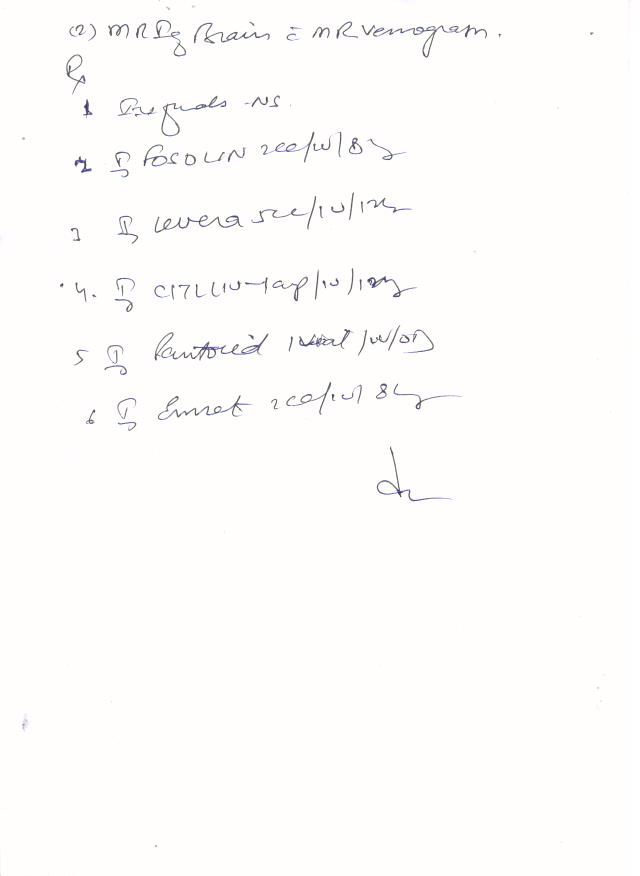 (2) MRIg Brain c̄ MR venogram.
Rx
1 IV fluids - NS.
2 Inj FOSOLIN 2cc/IV/8hy
3 Inj Levera 5cc/IV/12hy
4. Inj CITILIN-1amp/IV/12hy
5 Inj Pantocid 1 vial/IV/OD
6 Inj Emset 2cc/IV/8hy